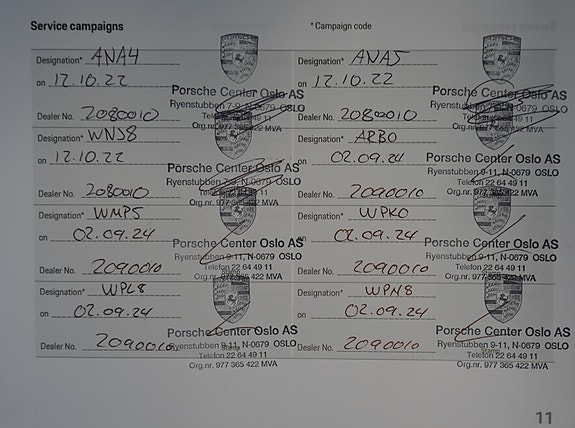 Service campaigns
* Campaign code
Designation* ANA4
on 12.10.22
Porsche Center Oslo AS
Ryenstubben 7-9, N-0679 OSLO
Dealer No. 2080010
Org.nr. 977 365 422 MVA
Designation* ANA5
on 12.10.22
Porsche Center Oslo AS
Ryenstubben 7-9, N-0679 OSLO
Dealer No. 2080010
Org.nr. 977 365 422 MVA
Designation* WNJ8
on 12.10.22
Porsche Center Oslo AS
Ryenstubben 7-9, N-0679 OSLO
Dealer No. 2080010
Org.nr. 977 365 422 MVA
Designation* ARB0
on 02.09.24
Porsche Center Oslo AS
Ryenstubben 9-11, N-0679 OSLO
Telefon 22 64 49 11
Dealer No. 2090010
Org.nr. 977 365 422 MVA
Designation* WMP5
on 02.09.24
Porsche Center Oslo AS
Ryenstubben 9-11, N-0679 OSLO
Telefon 22 64 49 11
Dealer No. 2090010
Org.nr. 977 365 422 MVA
Designation* WPK0
on 02.09.24
Porsche Center Oslo AS
Ryenstubben 9-11, N-0679 OSLO
Telefon 22 64 49 11
Dealer No. 2090010
Org.nr. 977 365 422 MVA
Designation* WPL8
on 02.09.24
Porsche Center Oslo AS
Ryenstubben 9-11, N-0679 OSLO
Dealer No. 2090010
Telefon 22 64 49 11
Org.nr. 977 365 422 MVA
Designation* WPN8
on 02.09.24
Porsche Center Oslo AS
Ryenstubben 9-11, N-0679 OSLO
Dealer No. 2090010
Telefon 22 64 49 11
Org.nr. 977 365 422 MVA
11